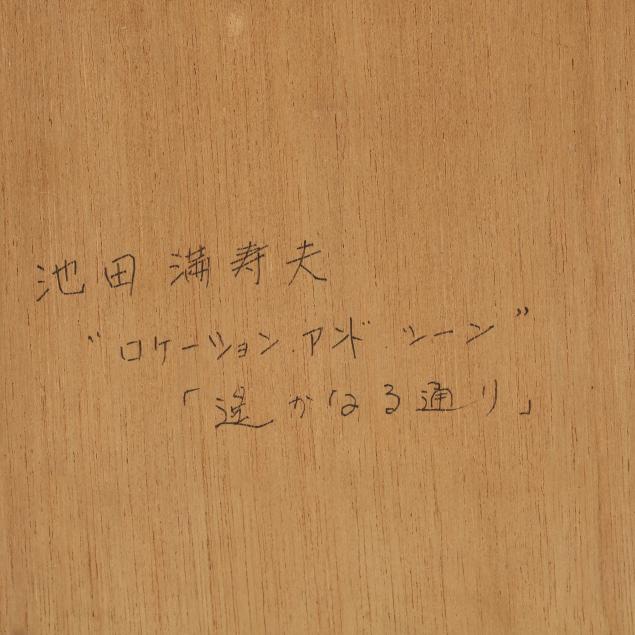 池田満寿夫
"ロケーション.アンド.シーン"
「遥かなる通り」